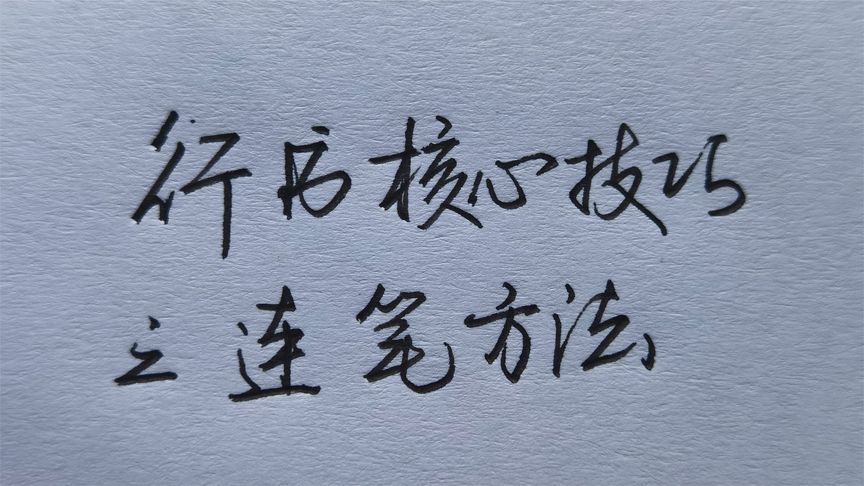 行书核心技巧
之连笔方法